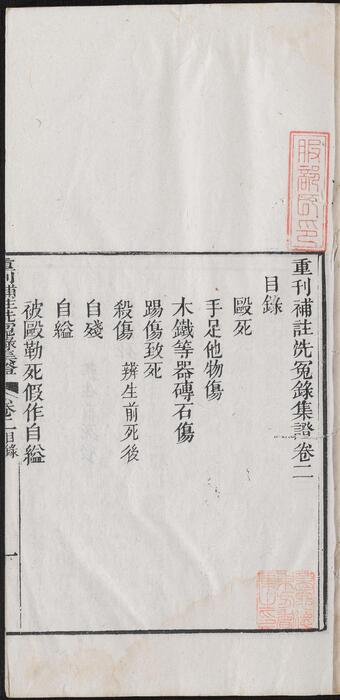 重刊補註洗冤錄集證卷二
目錄
毆死
手足他物傷
木鐵等器磚石傷
踢傷致死
殺傷 辨生前死後
自殘
自縊
被毆勒死假作自縊
重刊補註洗冤錄集證 卷二目錄 一
服部氏印